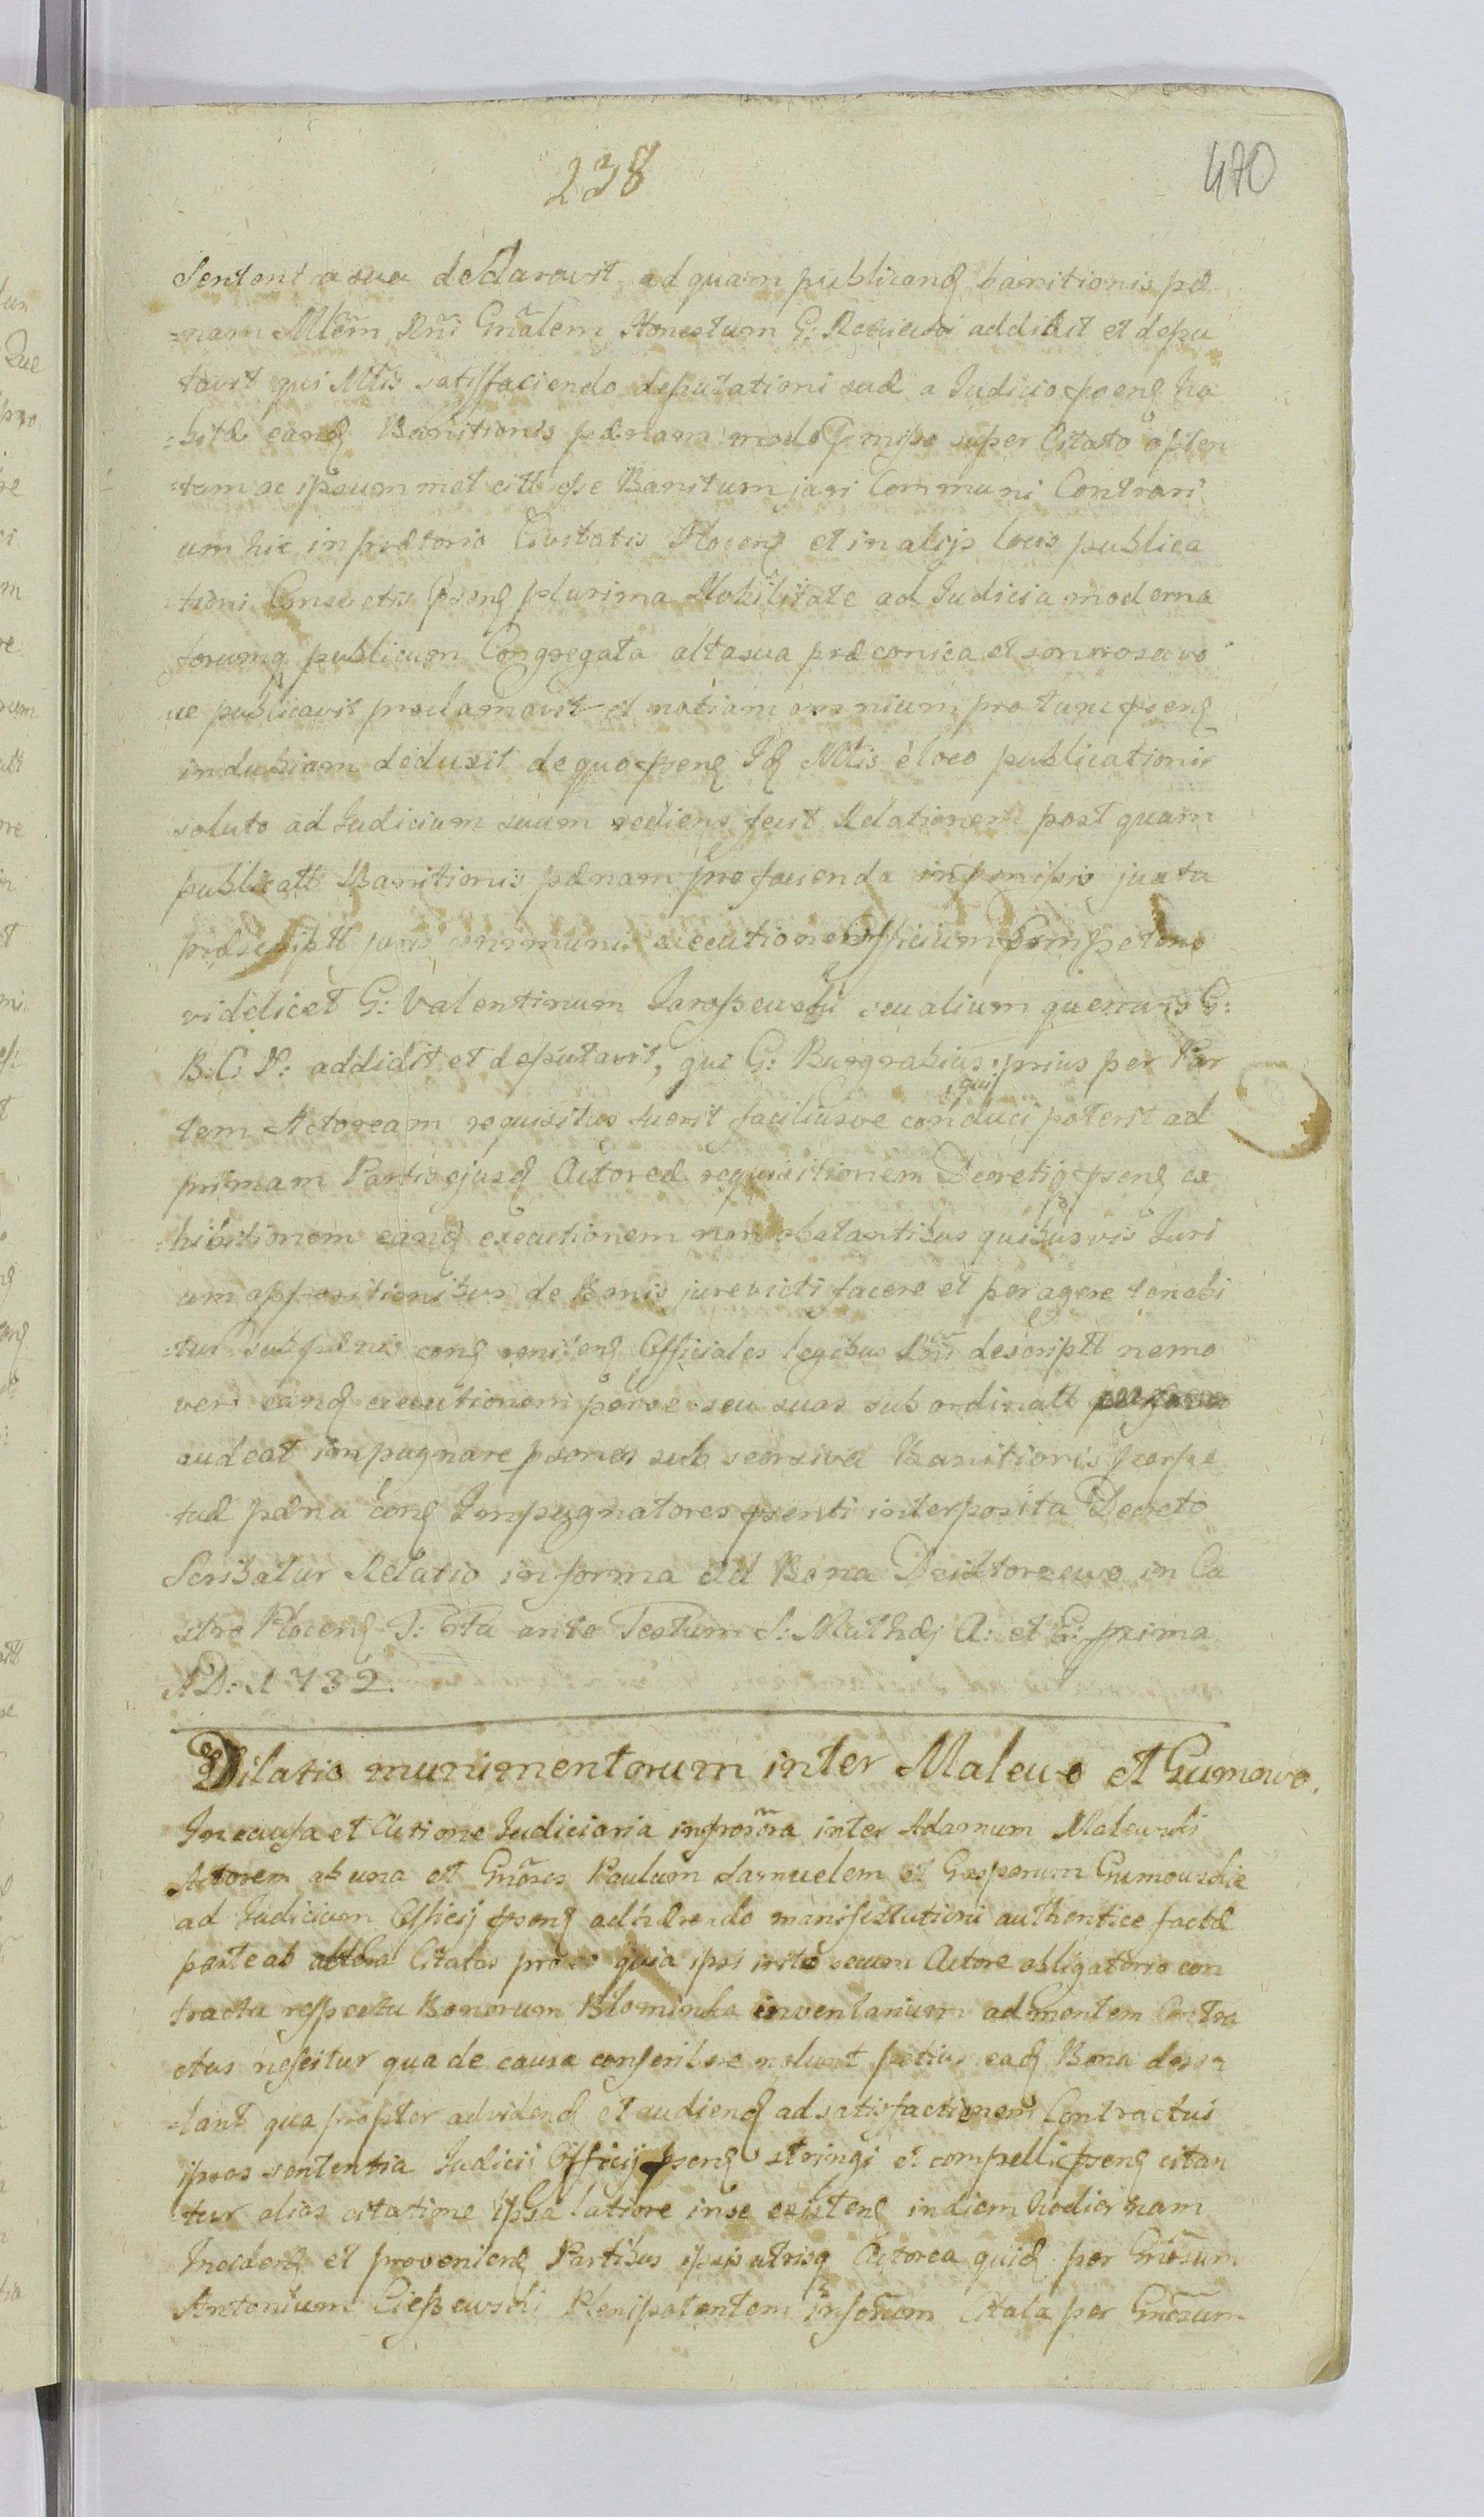 238
470
Sententia sua declaravit ad quam publicand banitionis pæ
=nam Mlem Rni Gnalem Honestum G: addidit et depu
tavit qui Mtis satisfaciendo deputationi suæ a Judicio pseng ha
=bitæ eand Banitionis pænam modo pmisso super Citato opten
=tam ac ipsummet citt esse Banitum juri Communi Contrari
um hic in prætorio Civitatis Ploceng et in alijs locis publica
=tioni Consvetis pseng plurima Nobilitate ad Judicia moderna
forumq publicum Congregata alta sua præconica et sonorosa vo
ce publicavit proclamavit et notiam omnium pro tunc pseng
indubiam deduxit de quo pseng Id Mtis e loco publicationis
soluto ad Judicium suum rediens fecit Relationem post quam
publicatt Banitionis pænam pro facienda in pmissis juxta
præscriptt juris communis executione Officium Competens
videlicet G: Valentinum Jaroszewski seu alium quemvis G:
B: C: P: addidit et deputavit, qui G: Burgrabius prius per Par
tem Actoream requisitus fuerit faciliusve conduci qui poterit ad
primam Partis ejusd Actoreæ requisitionem Decretiq pseng ex
=hibitionem eand executionem non obstantibus quibusvis Juri
um oppositionibus de Bonis jurevicti facere et peragere tenebi
=tur sub pænis cong reniteng Officiales legibus Rni descriptt nemo
vero eand executionem per se seu suas subordinatt
audeat impugnare psonas sub seorsiva Banitionis perpe
tuæ pæna cong Impugnatores psenti interposita Decreto
Scribatur Relatio in forma ad Bona in Ca
stro Ploceng F: 6ta ante Festum S: Mathæj A: et E: prima
AD: 1732.
Dilatio munimentorum inter Malewo et Gumowo.
In causa et Actione Judiciaria infrascra inter Adamum Malewski
Actorem ab una et Gnosos Paulum Samuelem et Gasparum Gumowskie
ad Judicium Officij pseng adhærendo manifestationi authentice factæ
parte ab altera Citatos pro eo quia ipsi inito secum Actore obligatorio con
tractu respectu Bonorum inventarium ad mentem Contra
ctus nescitur qua de causa conscribere nolunt potius ead Bona desa
=lant quapropter ad vidend et audiend ad satisfactionem Contractui
ipsos sententia Judicii Officij pseng stringi et compelli pseng citan
=tur alias citatione ipsa latiore in se existeng in diem hodiernam
Incideng et provenieng Partibus ipsis utrisq Actorea quid per Gnosum
Antonium Plenipotentem Citata per Gnosum